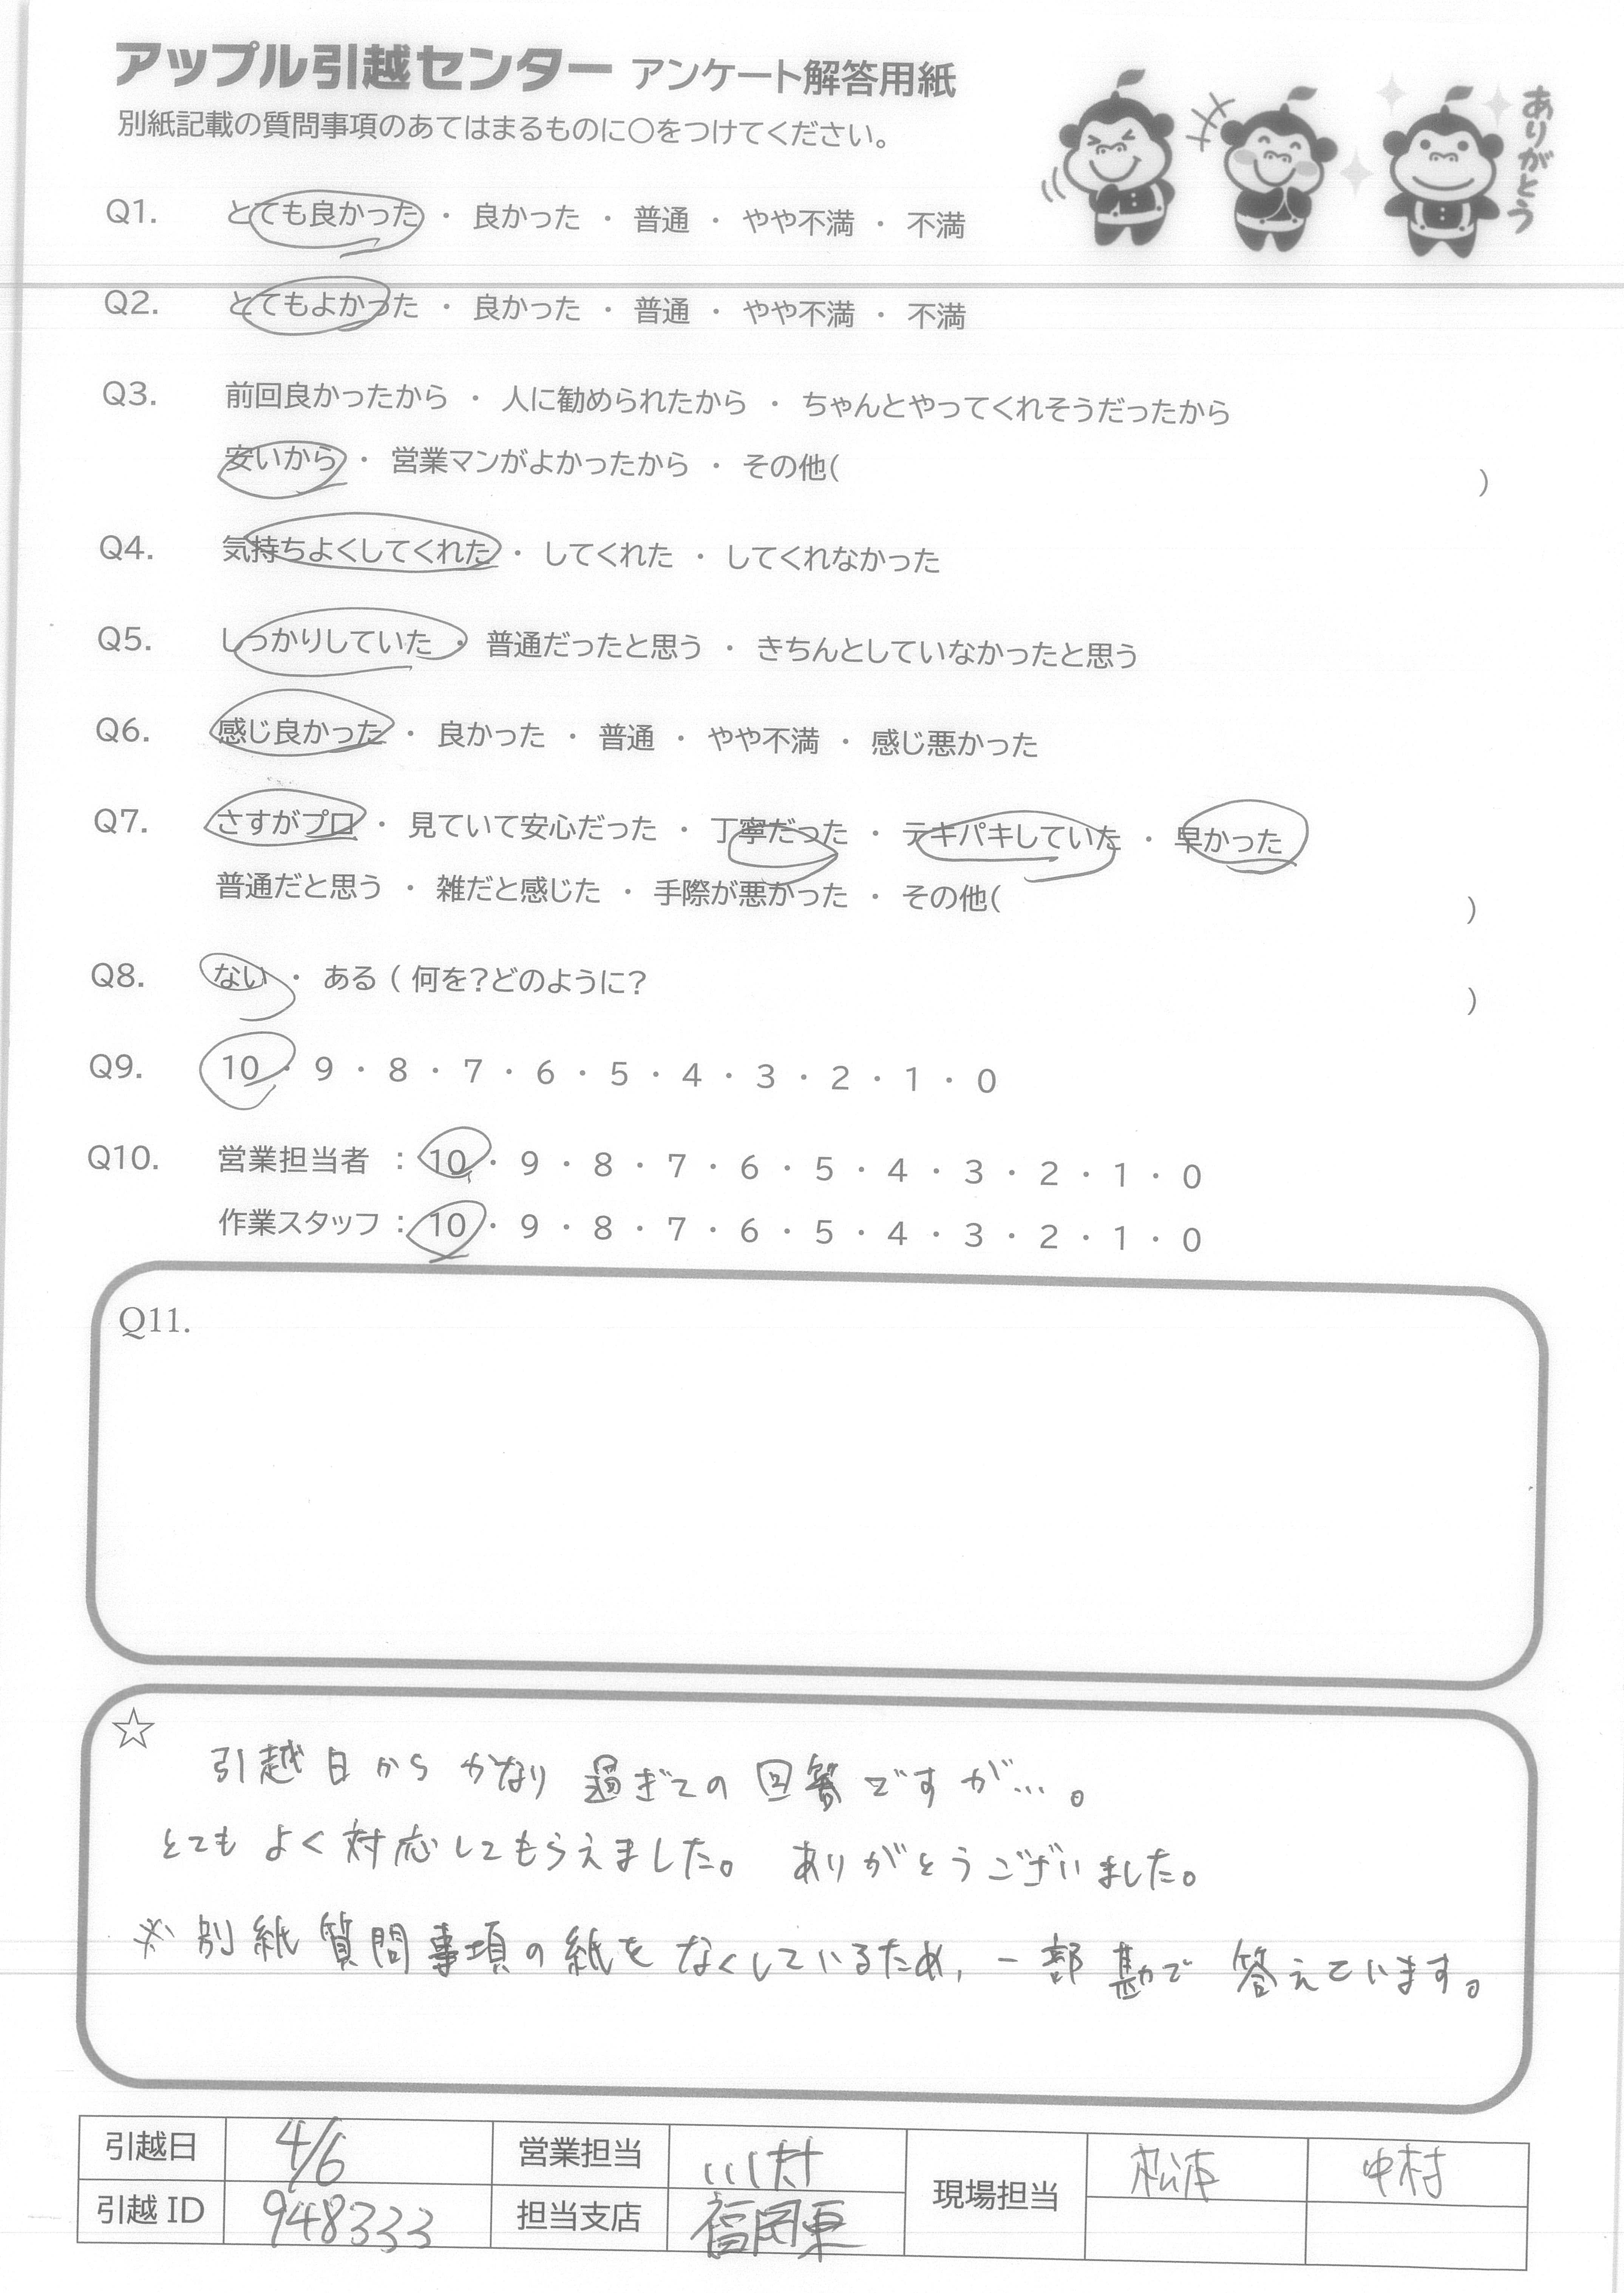 アップル引越センター アンケート解答用紙
別紙記載の質問事項のあてはまるものに〇をつけてください。
ありがとう
Q1. とても良かった ・ 良かった ・ 普通 ・ やや不満 ・ 不満
Q2. とてもよかった ・ 良かった ・ 普通 ・ やや不満 ・ 不満
Q3. 前回良かったから ・ 人に勧められたから ・ ちゃんとやってくれそうだったから
安いから ・ 営業マンがよかったから ・ その他( )
Q4. 気持ちよくしてくれた ・ してくれた ・ してくれなかった
Q5. しっかりしていた ・ 普通だったと思う ・ きちんとしていなかったと思う
Q6. 感じ良かった ・ 良かった ・ 普通 ・ やや不満 ・ 感じ悪かった
Q7. さすがプロ ・ 見ていて安心だった ・ 丁寧だった ・ テキパキしていた ・ 早かった
普通だと思う ・ 雑だと感じた ・ 手際が悪かった ・ その他( )
Q8. ない ・ ある ( 何を?どのように? )
Q9. 10 ・ 9 ・ 8 ・ 7 ・ 6 ・ 5 ・ 4 ・ 3 ・ 2 ・ 1 ・ 0
Q10. 営業担当者 : 10 ・ 9 ・ 8 ・ 7 ・ 6 ・ 5 ・ 4 ・ 3 ・ 2 ・ 1 ・ 0
作業スタッフ : 10 ・ 9 ・ 8 ・ 7 ・ 6 ・ 5 ・ 4 ・ 3 ・ 2 ・ 1 ・ 0
Q11.
☆
引越日からかなり過ぎての回答ですが…。
とてもよく対応してもらえました。 ありがとうございました。
※別紙質問事項の紙をなくしているため、一部勘で答えています。
引越日 4/6 営業担当 川村 現場担当 松本 中村
引越ID 948333 担当支店 福岡東